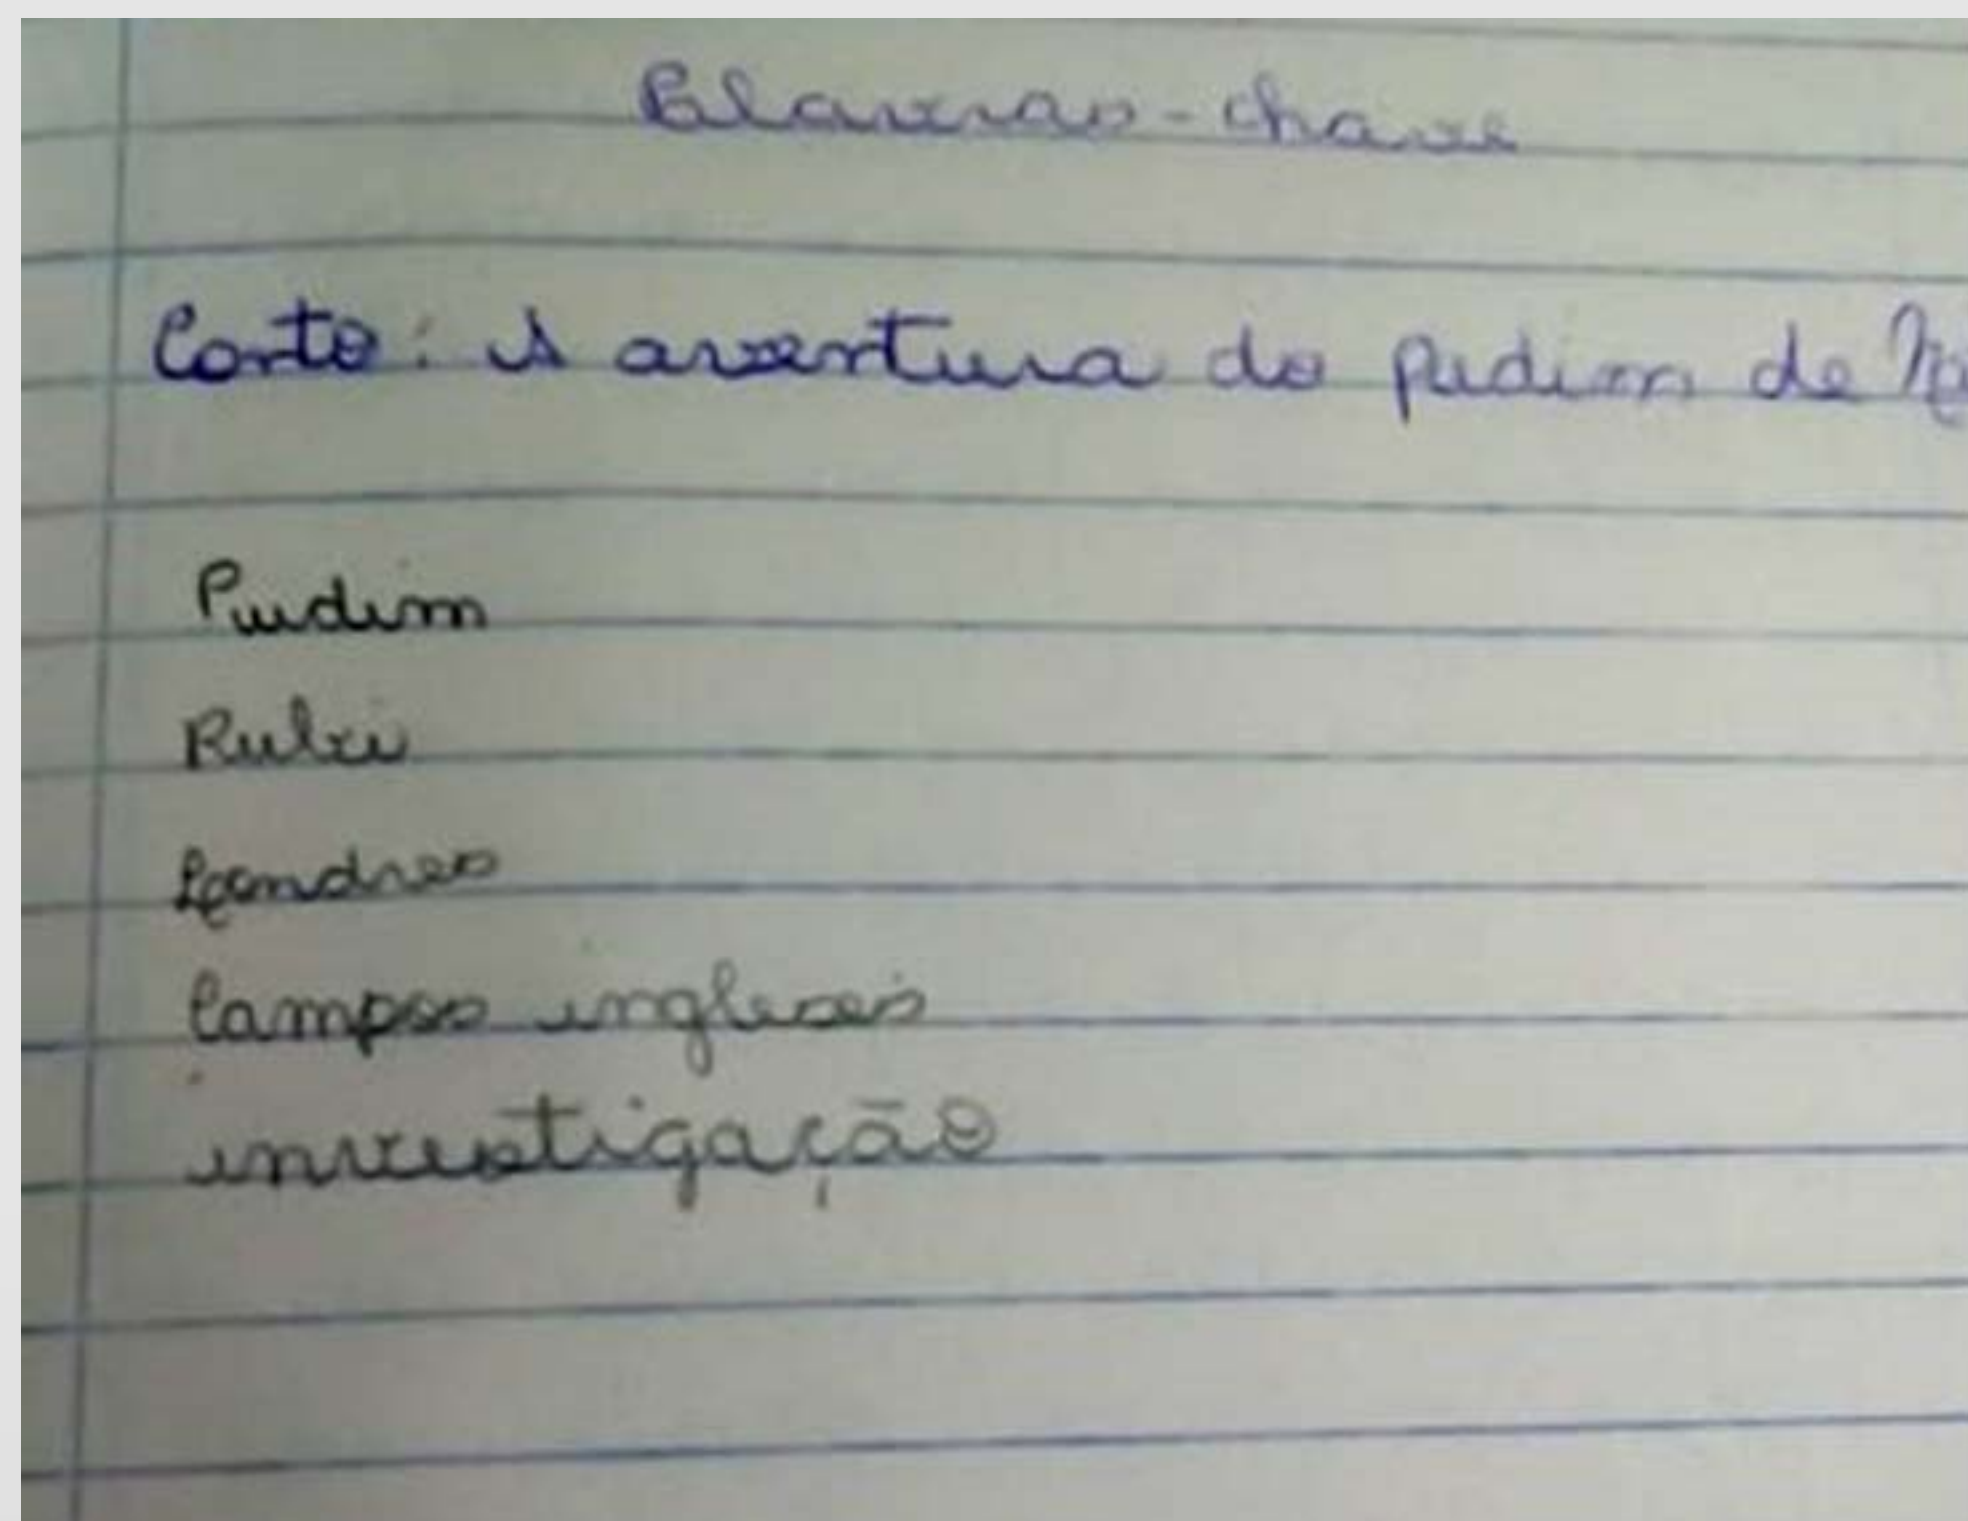 Palavras-chave
Conto: A aventura do pudim de
Pudim
Rubi
Londres
Campos ingleses
investigação